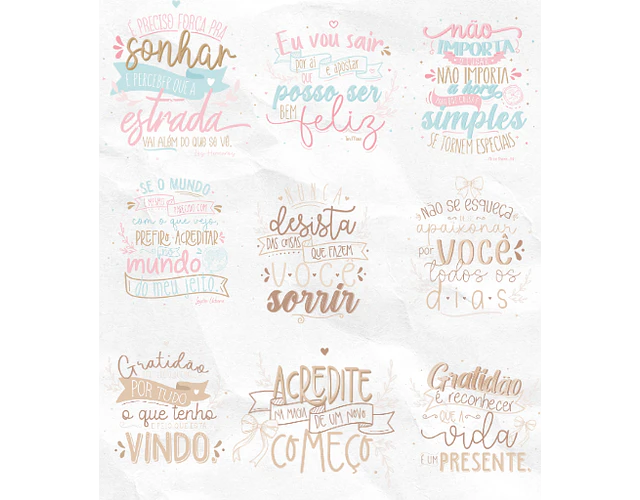 É PRECISO FORÇA PRA
sonhar
E PERCEBER QUE A
estrada
VAI ALÉM DO QUE SE VÊ.
Eu vou sair
por aí e apostar
QUE
posso ser
BEM
feliz
não
IMPORTA
O LUGAR
NÃO IMPORTA
a hora
simples
SE TORNEM ESPECIAIS
SE O MUNDO
com o que vejo,
PREFIRO ACREDITAR
mundo
do meu jeito.
NUNCA
desista
DAS COISAS QUE FAZEM
VOCÊ
sorrir
NÃO SE ESQUEÇA
apaixonar
por VOCÊ
todos os
dias
Gratidão
POR TUDO
o que tenho
VINDO.
ACREDITE
NA MAGIA DE UM NOVO
COMEÇO
Gratidão
é reconhecer
QUE A
vida
É UM PRESENTE.